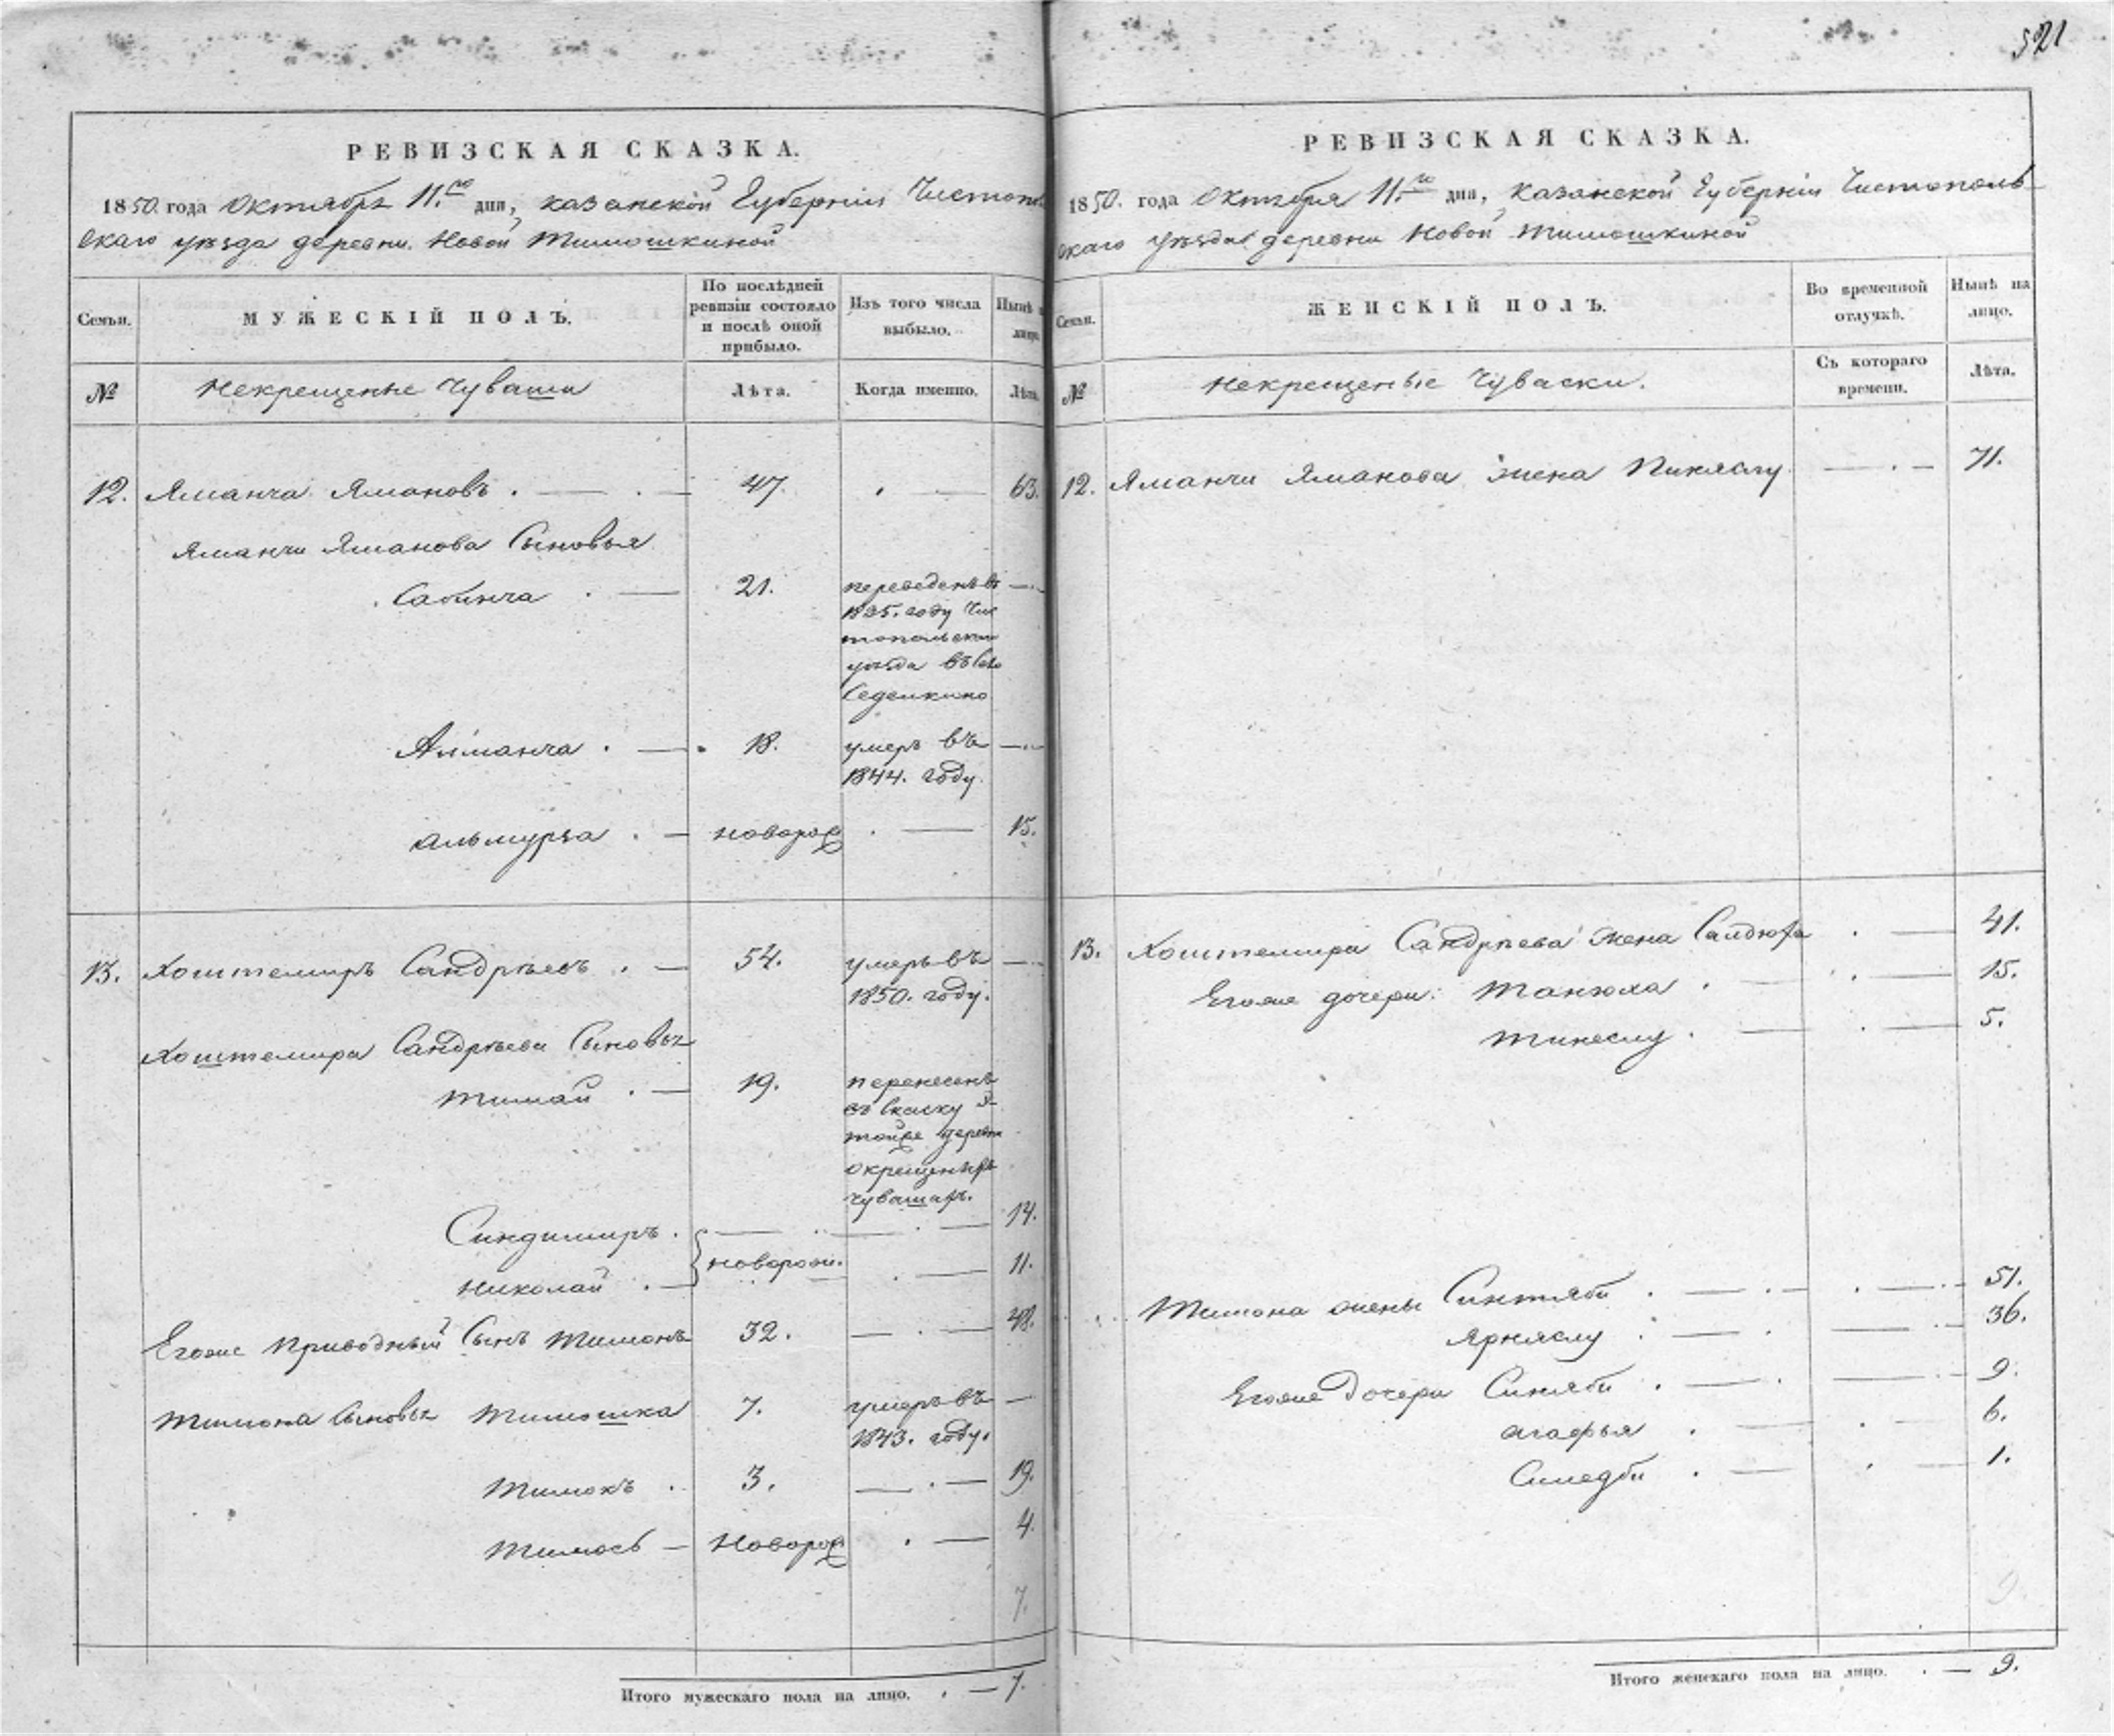 521
РЕВИЗСКАЯ СКАЗКА.
1850. года Октября 11.го дня, Казанской Губернiи Чистополь
скаго уѣзда деревни Новой Тимошкиной
Семьи.
МУЖЕСКIЙ ПОЛЪ.
По послѣдней ревизiи состояло и послѣ оной прибыло.
Изъ того числа выбыло.
Нынѣ на лицо.
№
Некрещеные Чуваши
Лѣта.
Когда именно.
Лѣта.
12. Яманча Ямановъ . — . — 47. . — 63.
Яманчи Яманова Сыновья
Сабинча . — 21. переведенъ въ —
1835. году Чис
топольскаго
уѣзда въ Село
Седелкино
Алманча . — 18. умеръ въ —
1844. году.
Альмурза . — новорож . — 15.
13. Хоштемиръ Сандрѣевъ . — 54. умеръ въ —
1850. году.
Хоштемира Сандрѣева Сыновья
Тимай . — 19. перенесенъ
въ скаску
тойже деревни
окрещеныхъ
чувашахъ.
Синдимиръ . — 14.
Николай . — новорож. . — 11.
Егоже Приводный Сынъ Тимонъ 32. — . — 48.
Тимона Сыновья Тимошка 7. умеръ въ —
1843. году.
Тимокъ . 3. — . — 19.
Тимось — Новорож . — 4.
7.
Итого мужескаго пола на лицо. . — 7.
РЕВИЗСКАЯ СКАЗКА.
1850. года Октября 11.го дня, Казанской Губернiи Чистополь
скаго уѣзда деревни Новой Тимошкиной
Семьи.
ЖЕНСКIЙ ПОЛЪ.
Во временной отлучкѣ.
Нынѣ на лицо.
№
Некрещеные Чуваски.
Съ котораго времени.
Лѣта.
12. Яманчи Яманова жена Пикяслу — . — 71.
13. Хоштемира Сандрѣева жена . — 41.
Егоже дочери: Танюха . — . — 15.
Тинеслу . — . — 5.
Тимона жены Синтяби . — . — 51.
Ярняслу . — . — 36.
Егоже дочери Синяби . — . — 9.
Агафья . — . — 6.
Симедби . — . — 1.
9.
Итого женскаго пола на лицо. . — 9.